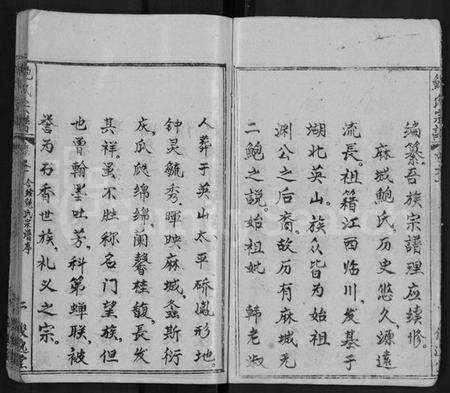 编纂吾族宗谱理应续修。
麻城鲍氏历史悠久、源远
流长。祖籍江西临川、发基于
湖北英山。族众皆为始祖
渊公之后裔。故历有麻城无
二鲍之说。始祖妣 韩老淑
人葬于英山太平硚滬形地。
钟灵毓秀、晖映麻城。螽斯衍
庆、瓜瓞绵绵、兰馨桂馥、长发
其祥。虽不胜称名门望族、但
也曾翰墨吐芳、科第蝉联、被
誉为书香世族、礼义之宗。